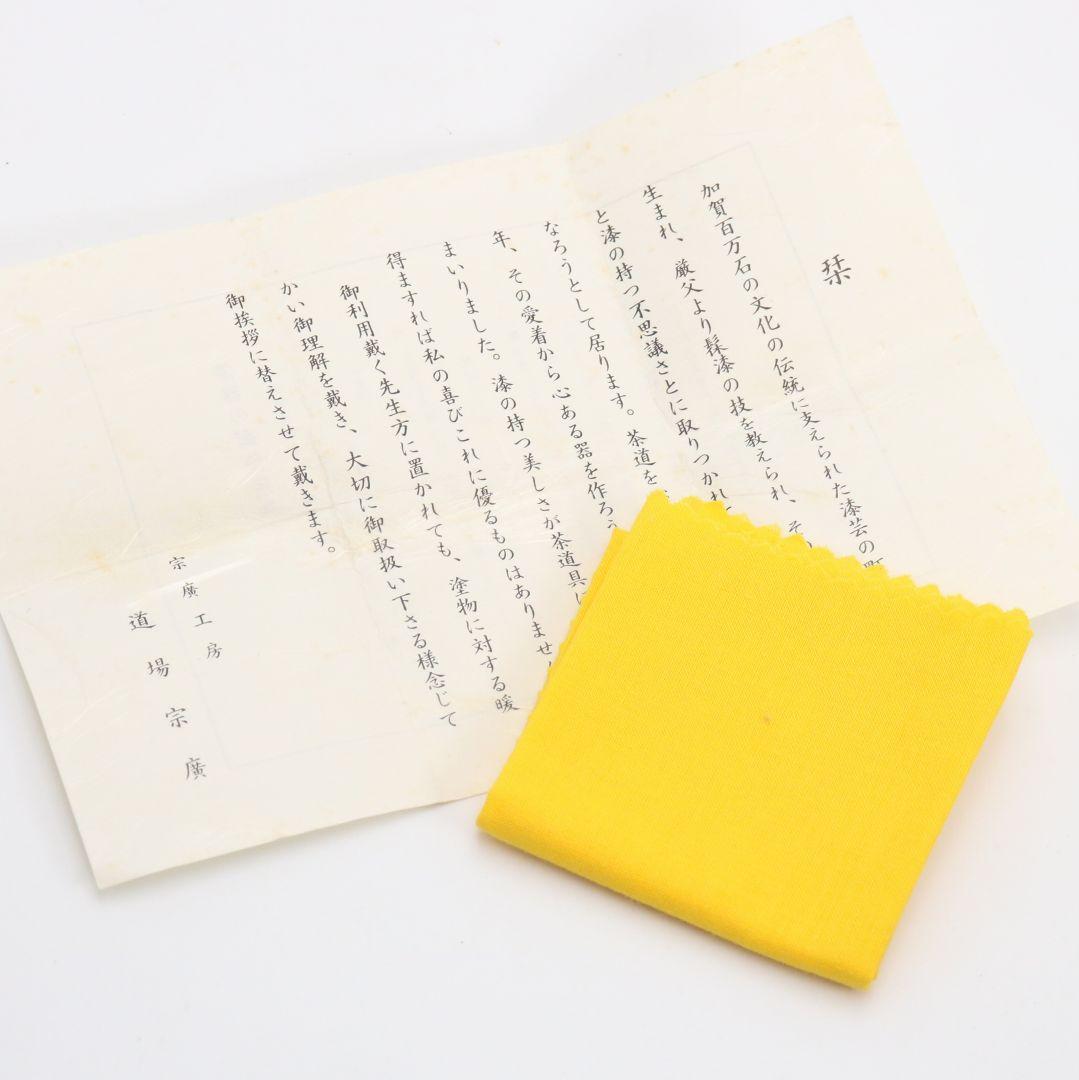 栞
加賀百万石の文化の伝統に支えられた漆芸の町
生まれ、厳父より髹漆の技を教えられ、その
と漆の持つ不思議さとに取りつかれて
なろうとして居ります。茶道を
年、その愛着から心ある器を作ろう
まいりました。漆の持つ美しさが茶道具に
得ますれば私の喜びこれに優るものはありませ
御利用戴く先生方に置かれても、塗物に対する暖
かい御理解を戴き、大切に御取扱い下さる様念じて
御挨拶に替えさせて戴きます。
宗廣工房
道場宗廣